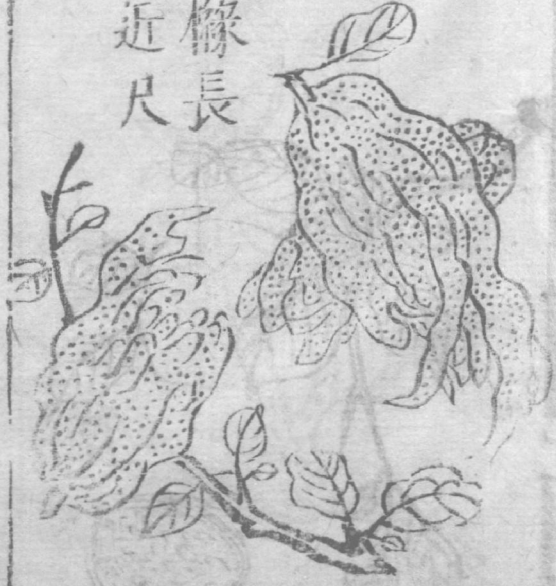 櫞長
近尺